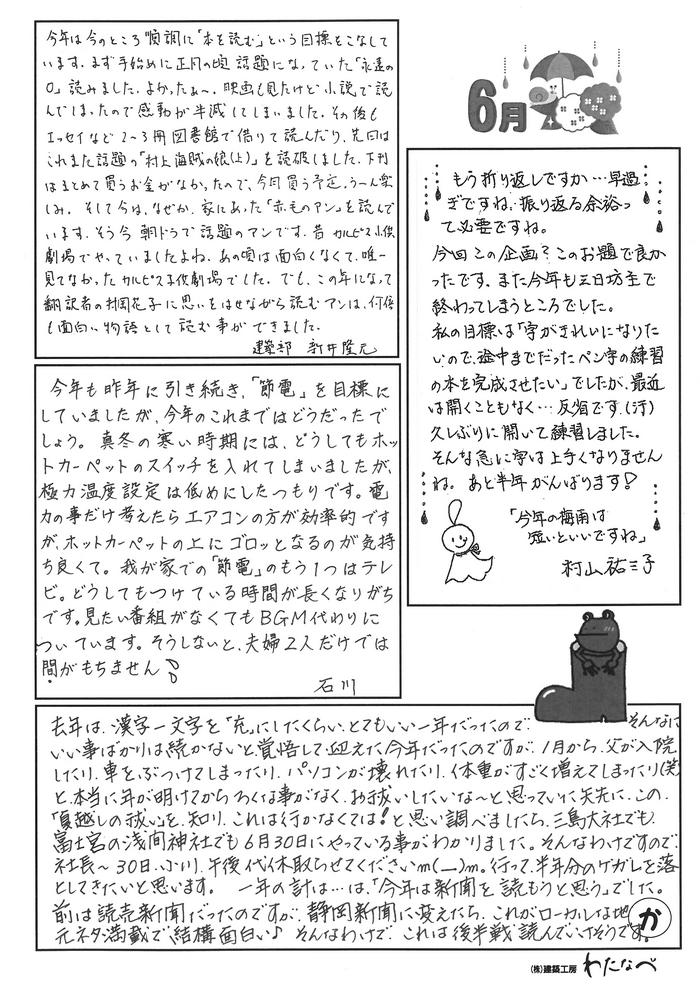 今年は今のところ順調に「本を読む」という目標をこなして
います。まず手始めに正月の頃話題になっていた「永遠の
0」読みました。よかったぁ〜。映画も見たけど小説で読
んでしまったので感動が半減してしまいました。その後も
エッセイなど2〜3冊図書館で借りて読んだり、先日は
これまた話題の「村上海賊の娘(上)」を読破しました。下刊
はまとめて買うお金がなかったので、今月買う予定。う〜ん楽
しみ。そして今は、なぜか、家にあった「赤毛のアン」を読んで
います。そう今朝ドラで話題のアンです。昔カルピス子供
劇場でやっていましたよね。あの頃は面白くなくて、唯一
見てなかったカルピス子供劇場でした。でも、この年になって
翻訳者の村岡花子に思いをはせながら読むアンは、何倍
も面白い物語として読む事ができました。
建築部 新井隆元
今年も昨年に引き続き、「節電」を目標に
していましたが、今年のこれまではどうだったで
しょう。真冬の寒い時期には、どうしてもホッ
トカーペットのスイッチを入れてしまいましたが、
極力温度設定は低めにしたつもりです。電
力の事だけ考えたらエアコンの方が効率的です
が、ホットカーペットの上にゴロッとなるのが気持
ち良くて。我が家での「節電」のもう1つはテレ
ビ。どうしてもつけている時間が長くなりがち
です。見たい番組がなくてもBGM代わりに
ついています。そうしないと、夫婦2人だけでは
間がもちません
石川
6月
もう折り返しですか…早過
ぎですね。振り返る余裕っ
て必要ですね。
今回この企画?このお題で良か
ったです。また今年も三日坊主で
終わってしまうところでした。
私の目標は「字がきれいになりた
いので、途中までだったペン字の練習
の本を完成させたい」でしたが、最近
は開くこともなく…反省です。(汗)
久しぶりに開いて練習しました。
そんな急に字は上手くなりません
ね。あと半年がんばります!
「今年の梅雨は
短いといいですね」
村山祐三子
去年は、漢字一文字を「充」にしたくらい、とてもいい一年だったので、そんなに
いい事ばかりは続かないと覚悟して迎えた今年だったのですが、1月から、父が入院
したり、車をぶつけてしまったり、パソコンが壊れたり、体重がすごく増えてしまったり(笑)
と、本当に年が明けてからろくな事がなく、お祓いしたいな〜と思っていた矢先に、この、
「夏越しの祓い」を知り、これは行かなくては!と思い調べましたら、三島大社でも、
富士宮の浅間神社でも6月30日にやっている事がわかりました。そんなわけですので、
社長〜30日、小川、午後代休取らせてくださいm(__)m。行って、半年分のケガレを落
としてきたいと思います。 一年の計は…は、「今年は新聞を読もうと思う」でした。
前は読売新聞だったのですが、静岡新聞に変えたら、これがローカルな地
元ネタ満載で結構面白い♪ そんなわけで、これは後半戦読んでいけそうです。
か
(株)建築工房 わたなべ